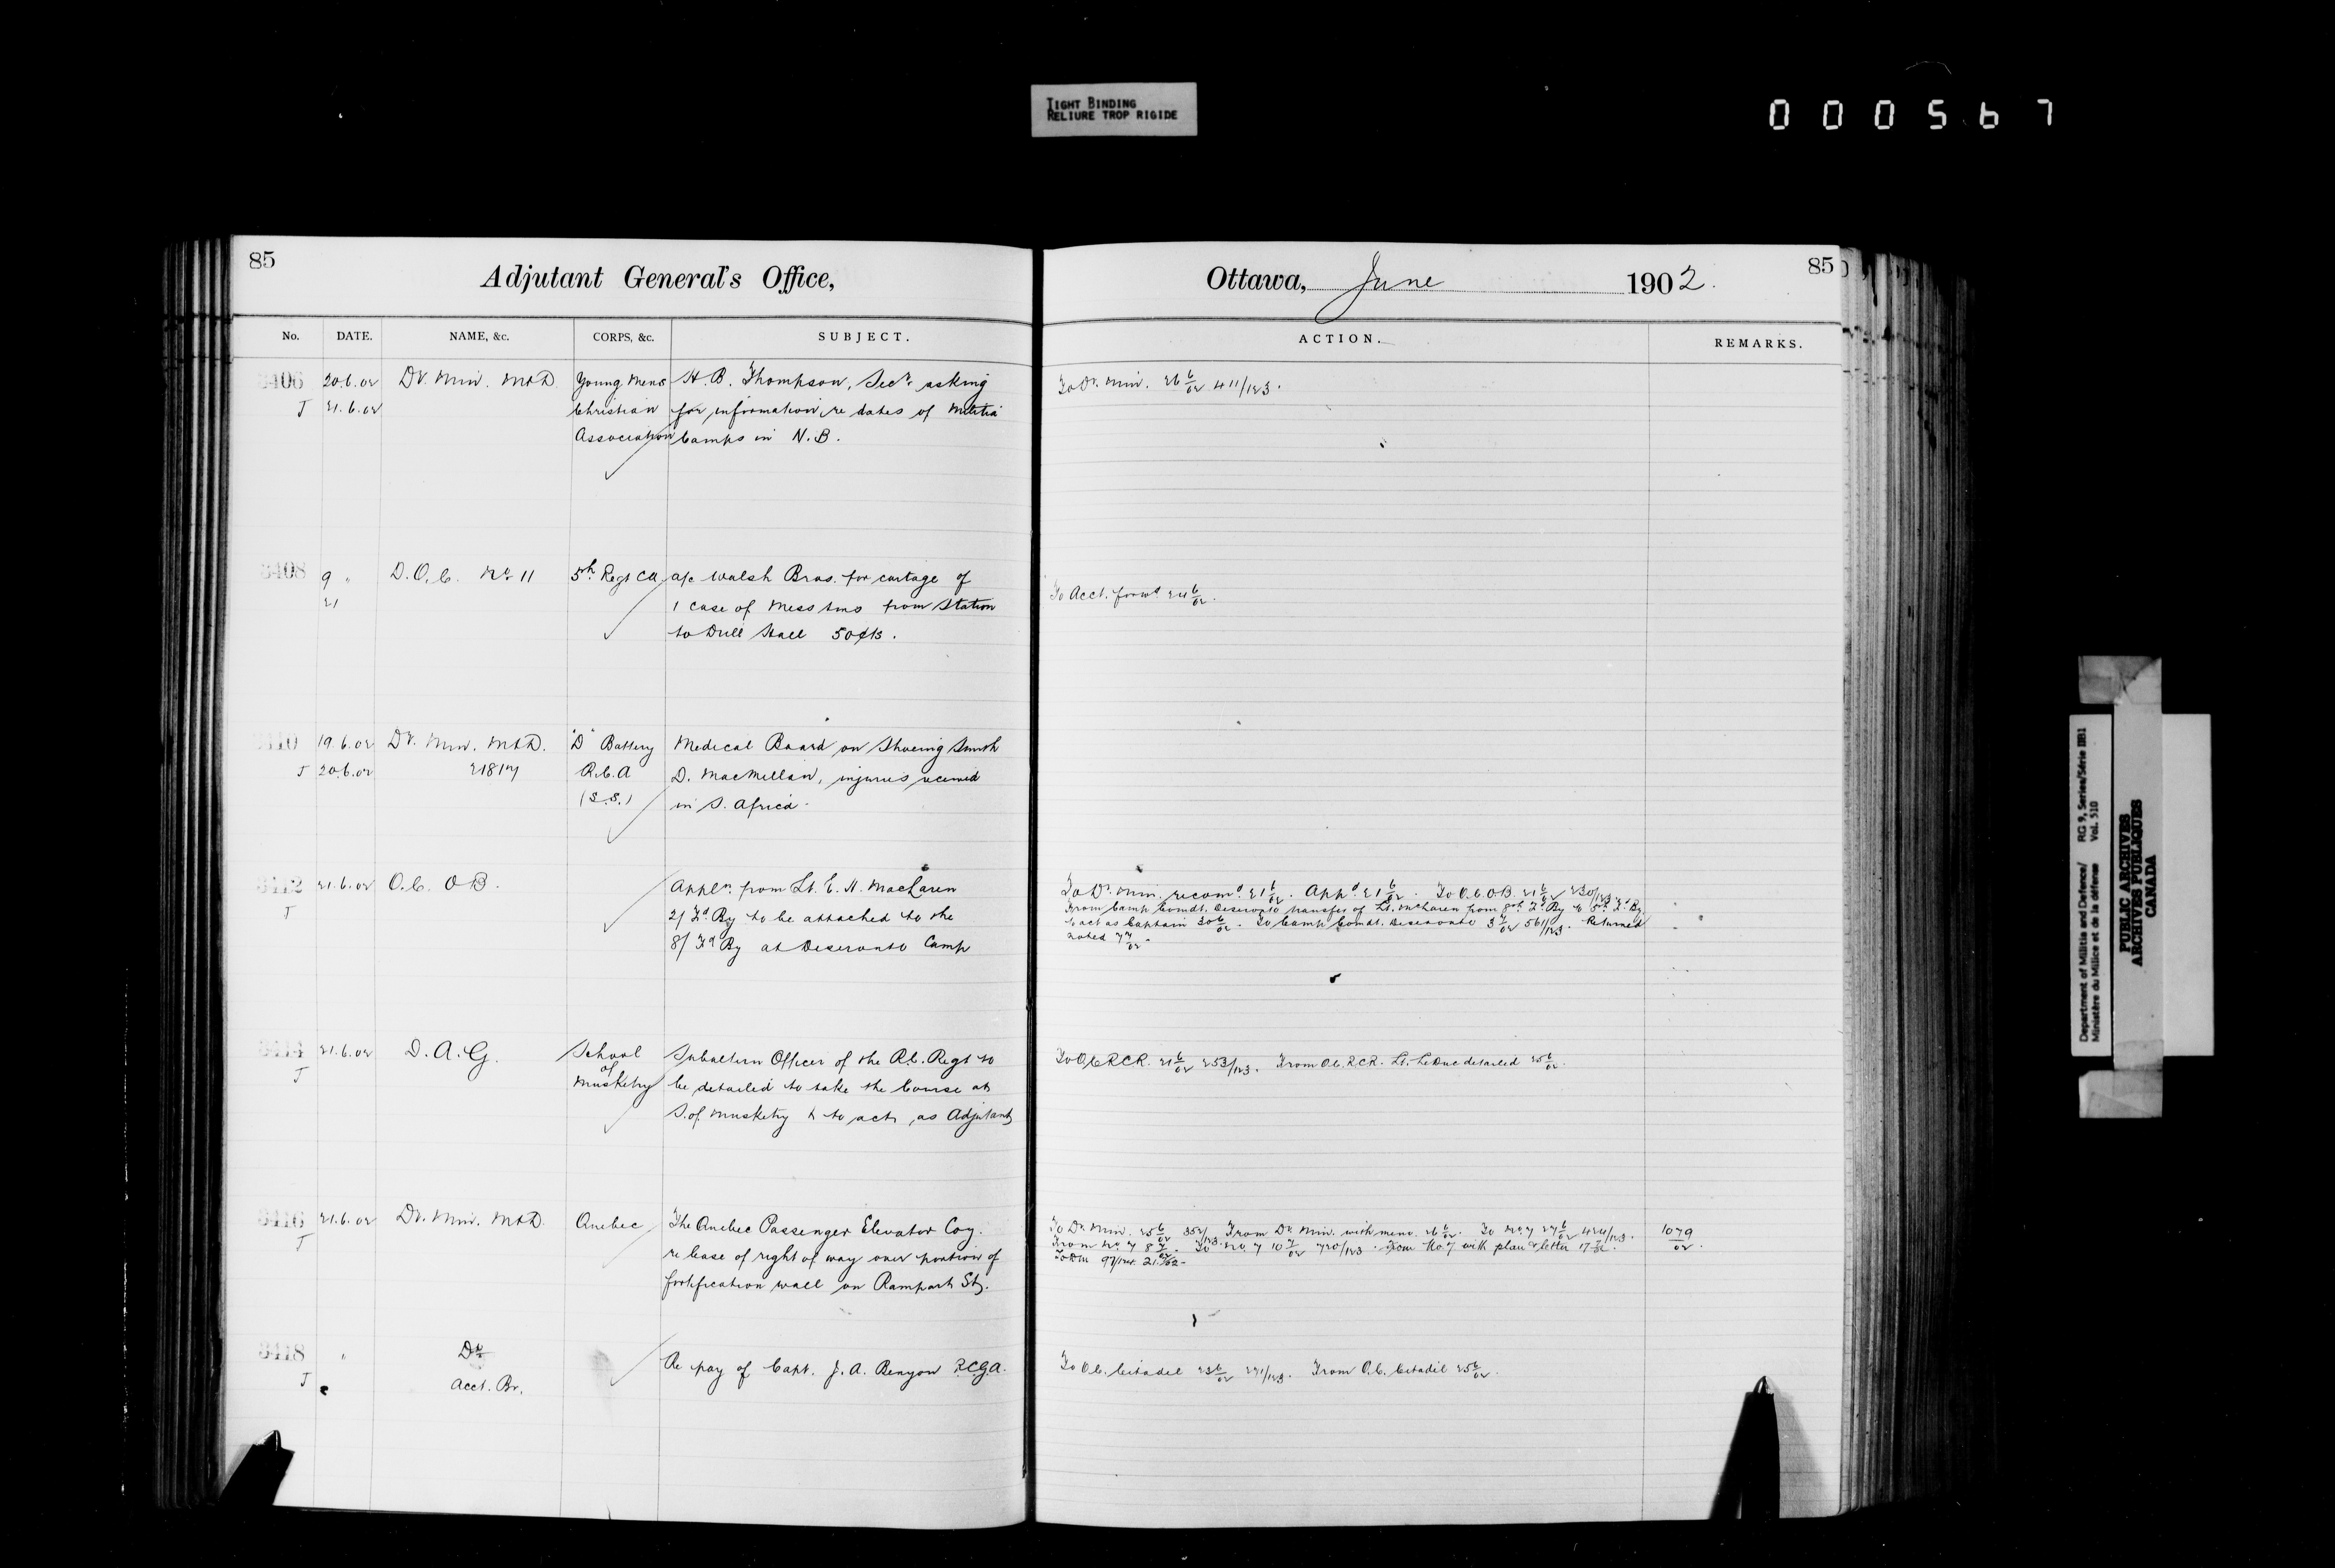 TIGHT BINDING
RELIURE TROP RIGIDE
000567
85
Adjutant General's Office,
No. DATE. NAME, &c. CORPS, &c. SUBJECT.
3406 20.6.02 Dr. Min. M&D. Young Mens H. B. Thompson, Secy. asking
J 21.6.02 Christian for information re dates of Militia
Association Camps in N.B.
3408 9 " D.O.C. No 11 5th Regt CA a/c Walsh Bros. for cartage of
21 1 case of Mess tins from Station
to Drill Hall 50cts.
3410 19.6.02 Dr. Min. M&D. "D" Battery Medical Board on Shoeing Smith
J 20.6.02 21817 R.C.A D. MacMillan, injuries received
(S.S.) in S. Africa.
3412 21.6.02 O.C. O.B. Appln. from Lt. E. H. MacLaren
J 2/ Fd By to be attached to the
8/ Fd By at Deseronto Camp
3414 21.6.02 D.A.G. School Subaltern Officer of the R.C. Regt to
J of
Musketry be detailed to take the Course at
S. of Musketry & to act as Adjutant
3416 21.6.02 Dr. Min. M&D. Quebec The Quebec Passenger Elevator Coy.
J re lease of right of way over portion of
fortification wall on Rampart St.
3418 " Do
J Acct. Br. Re pay of Capt. J. A. Benyon R.C.G.A.
Ottawa, June 1902.
85
ACTION. REMARKS.
To Dr. Min. 26 6/02 411/123.
To Acct. forwd 24 6/02.
To Dr. Min. recomd 21 6/02. Appd 21 6/02. To O.C. O.B. 21 6/02 230/123.
From Camp Comdt. Deseronto transfer of Lt. McLaren from 8th Fd By to 5th Fd By
to act as Captain 30 6/02. To Camp Comdt. Deseronto 3 7/02 561/123. Returned
noted 7 7/02.
To OC RCR. 21 6/02 253/123. From O.C. RCR. Lt. LeDuc detailed 25 6/02.
To Dr. Min. 25 6/02 352/123. From Dr. Min. with memo. 26 6/02. To No. 7 27 6/02 424/123. 1079/02.
From No. 7 8 7/02. To No. 7 10 7/02 720/123. From No. 7 with plan & letter 17 7/02.
To DM
To O.C. Citadel 23 6/02 271/123. From O.C. Citadel 25 6/02.
Department of Militia and Defence/ RG 9, Series/Série IIB1
Ministère du Milice et de la défense Vol. 510
PUBLIC ARCHIVES
ARCHIVES PUBLIQUES
CANADA